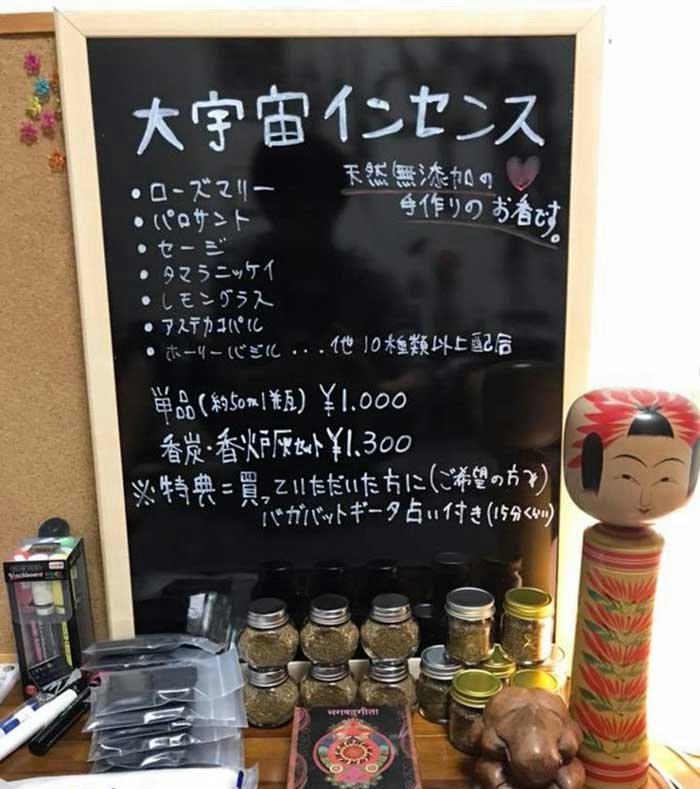 大宇宙インセンス
天然無添加の
手作りのお香です。
・ローズマリー
・パロサント
・セージ
・タマラニッケイ
・レモングラス
・アステカコパル
・ホーリーバジル...他10種類以上配合
単品(約50ml瓶)¥1.000
香炭・香炉灰セット¥1.300
※特典=買っていただいた方に(ご希望の方で)
バガバットギータ占い付き(15分くらい)
blackboard
भगवद्गीता